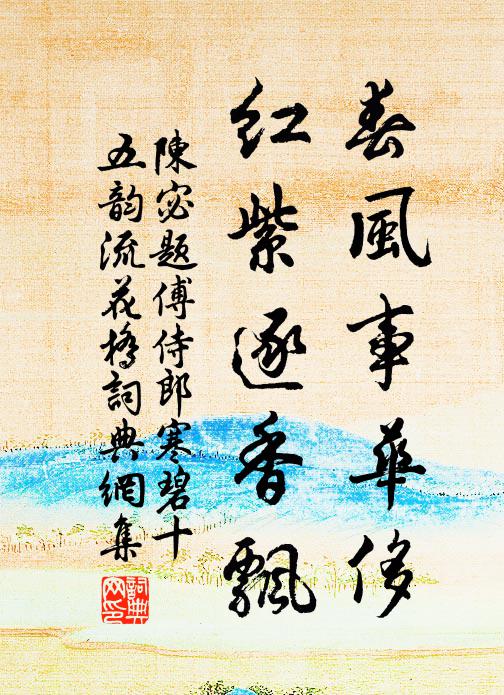 春風事華侈
紅紫逐香飄
陳宓題傅侍郎寒碧十
五韵流花橋詞典網集
詞典
网印